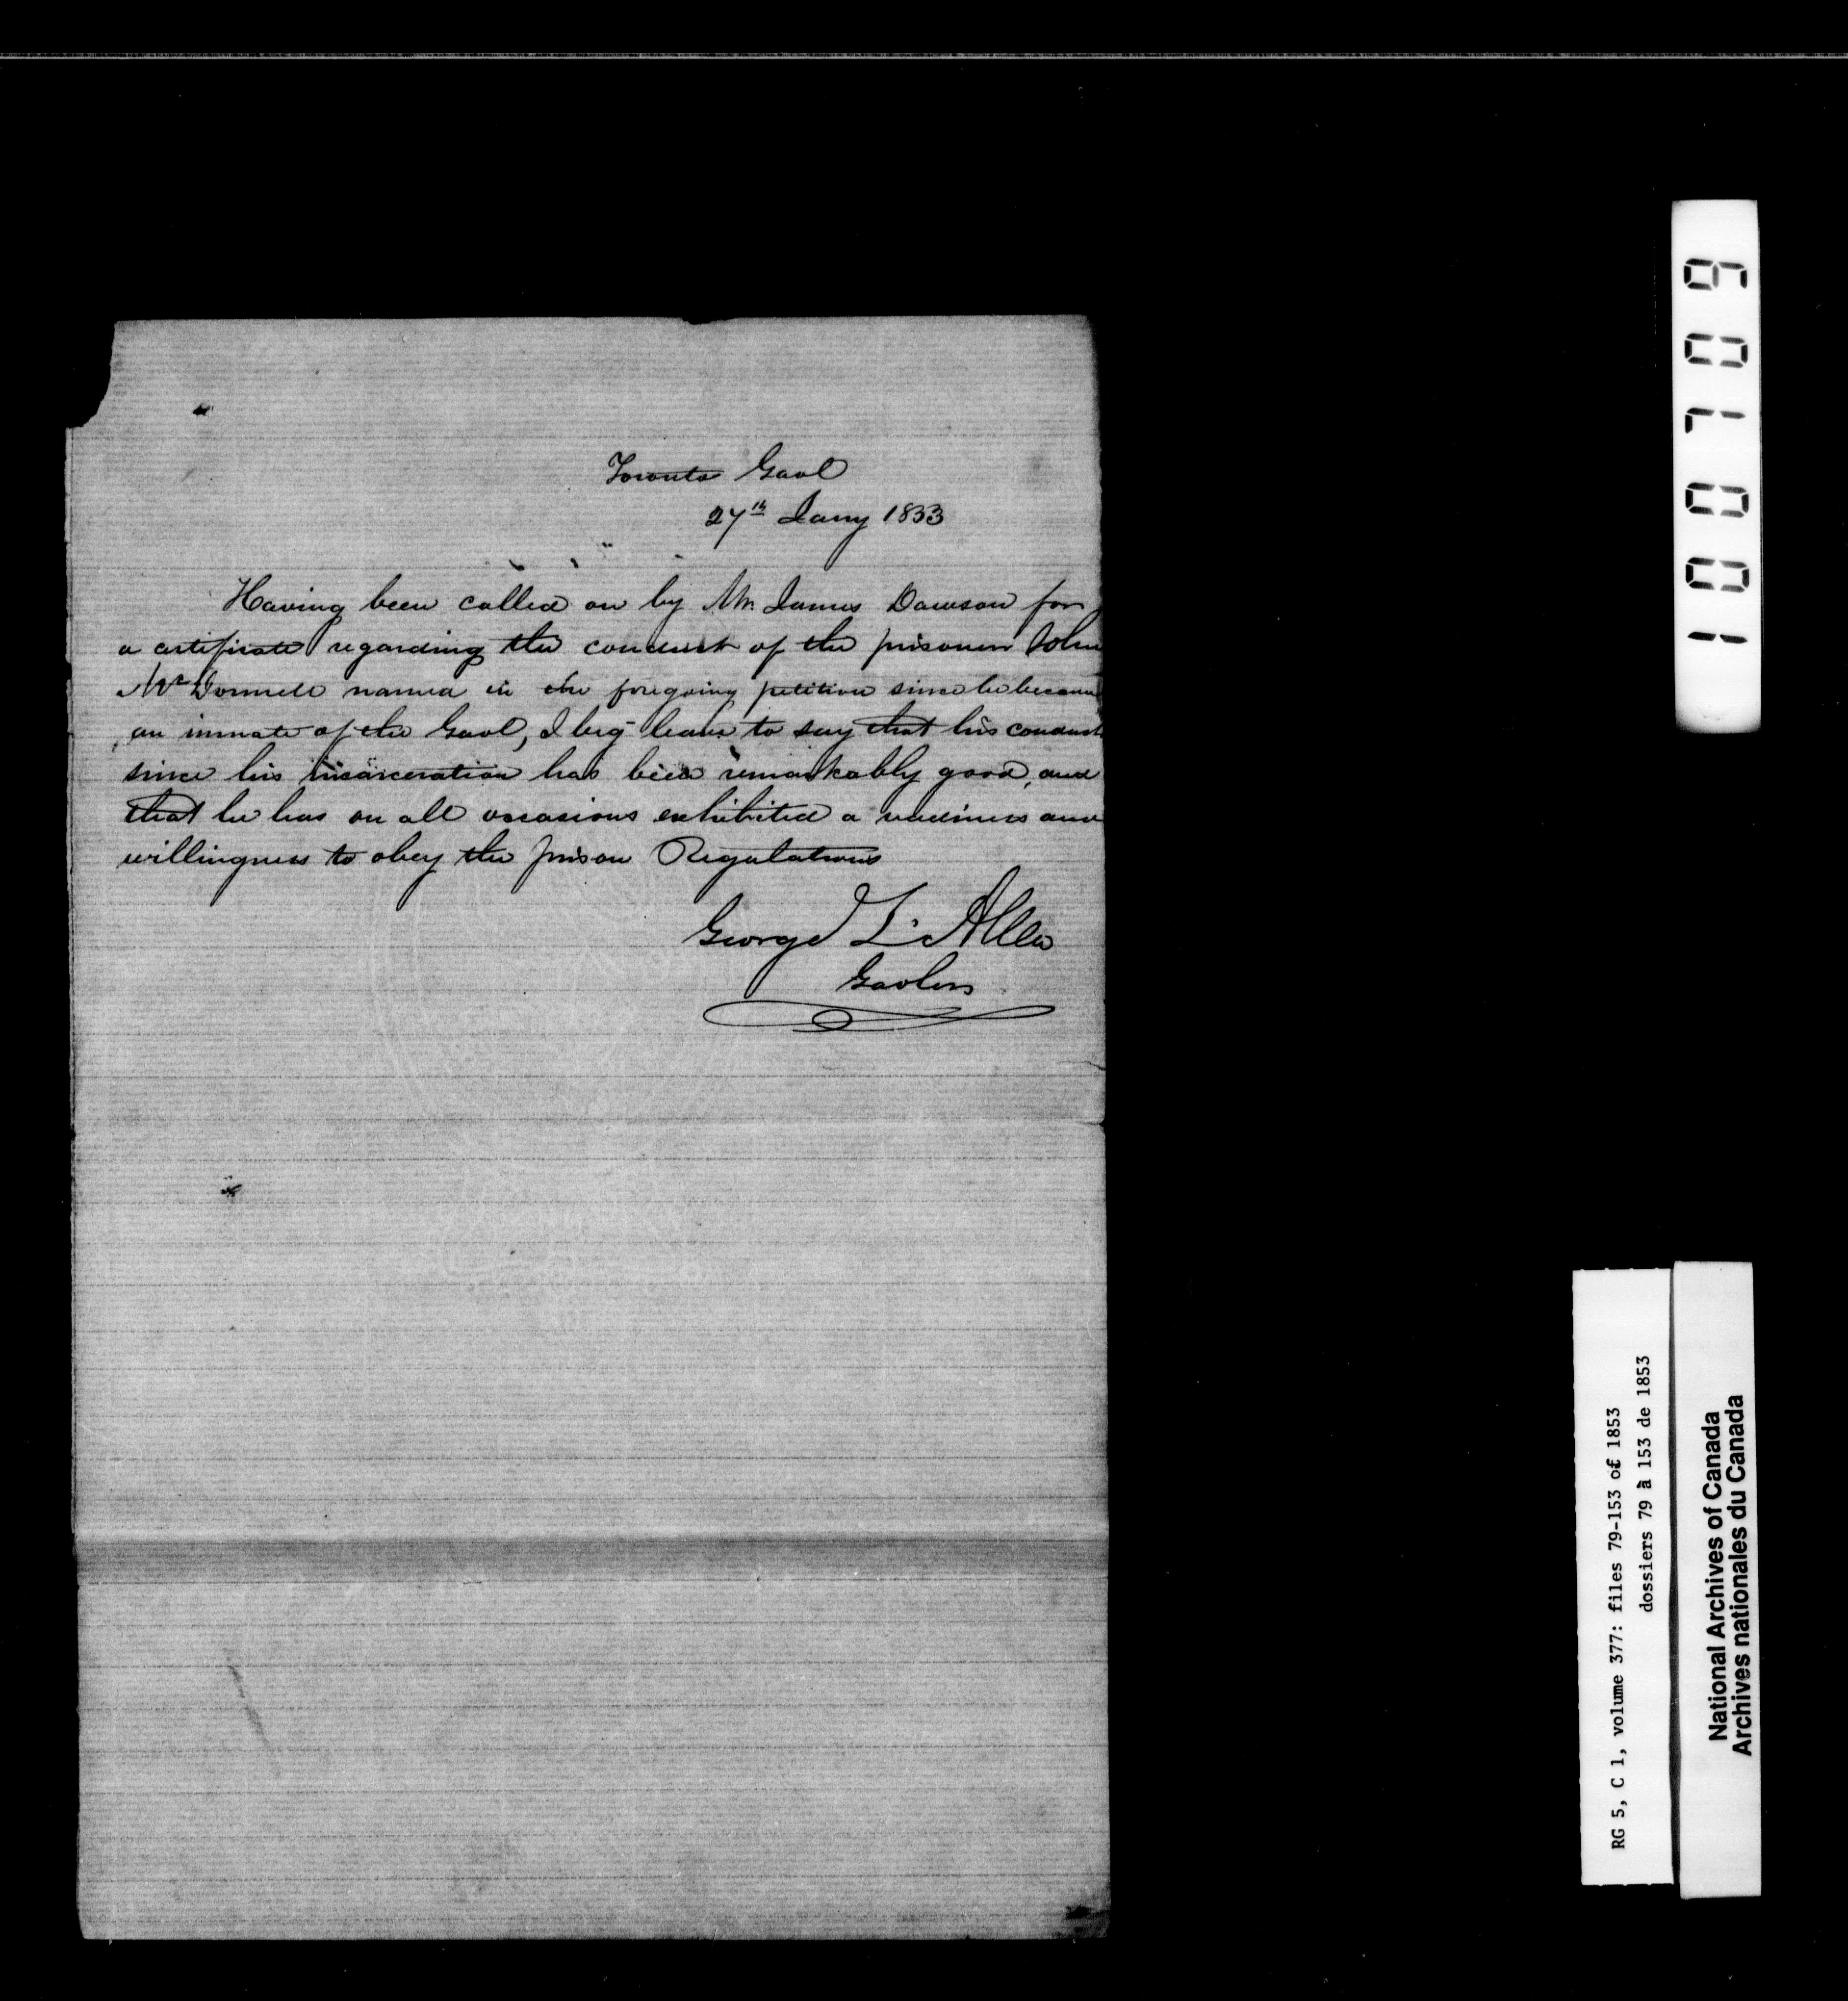 Toronto Gaol
27th Jany 1853
Having been called on by Mr. James Dawson for
a certificate regarding the conduct of the prisoner John
McDonnell named in the foregoing petition since he became
an inmate of the Gaol, I beg leave to say that his conduct
since his incarceration has been remarkably good, and
that he has on all occasions exhibited a readiness and
willingness to obey the prison Regulations
George L. Allen
Gaoler
100709
RG 5, C 1, volume 377: files 79-153 of 1853
dossiers 79 à 153 de 1853
National Archives of Canada
Archives nationales du Canada